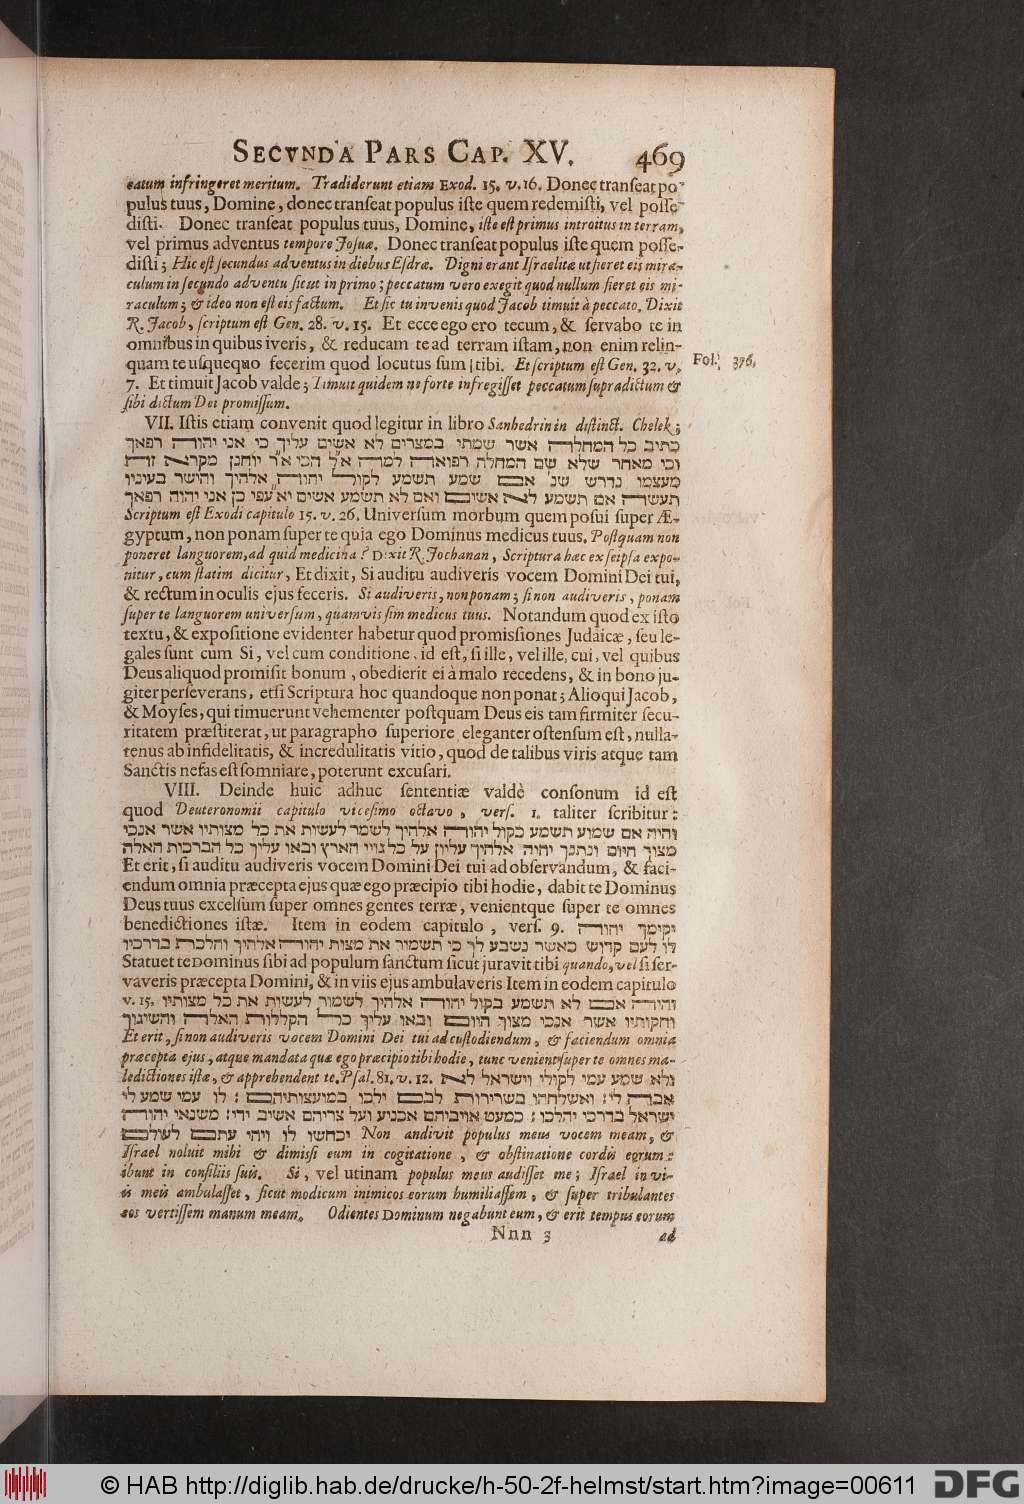 SECVNDA PARS CAP. XV. 469
catum infringeret meritum. Tradiderunt etiam Exod. 15. v. 16. Donec tranſeat po-
pulus tuus, Domine, donec tranſeat populus iſte quem redemiſti, vel poſſe-
diſti. Donec tranſeat populus tuus, Domine, iſte eſt primus introitus in terram,
vel primus adventus tempore Joſuæ. Donec tranſeat populus iſte quem poſſe-
diſti; Hic eſt ſecundus adventus in diebus Eſdræ. Digni erant Iſraelitæ ut fieret eis mira-
culum in ſecundo adventu ſicut in primo; peccatum vero exegit quod nullum fieret eis mi-
raculum; & ideo non eſt eis factum. Et ſic tu invenis quod Jacob timuit à peccato. Dixit
R. Jacob, ſcriptum eſt Gen. 28. v. 15. Et ecce ego ero tecum, & ſervabo te in
omnibus in quibus iveris, & reducam te ad terram iſtam, non enim relin-
quam te uſquequo fecerim quod locutus ſum tibi. Et ſcriptum eſt Gen. 32. v.
Fol. 376.
7. Et timuit Jacob valde; Timuit quidem ne forte infregiſſet peccatum ſupradictum &
ſibi dictum Dei promiſſum.
VII. Iſtis etiam convenit quod legitur in libro Sanhedrin in diſtinct. Chelek;
כתיב כל המחלה אשר שמתי במצרים לא אשים עליך כי אני יהוה רפאך
וכי מאחר שלא שם המחלה רפואה למה א״ל הכי א״ר יוחנן מקרא זה
מעצמו נדרש שנ׳ אם שמע תשמע לקול יהוה אלהיך והישר בעיניו
תעשה אם תשמע לא אשים ואם לא תשמע אשים יא״עפי כן אני יהוה רפאך
Scriptum eſt Exodi capitulo 15. v. 26. Univerſum morbum quem poſui ſuper Æ-
gyptum, non ponam ſuper te quia ego Dominus medicus tuus. Poſtquam non
poneret languorem, ad quid medicina? Dixit R. Jochanan, Scriptura hæc ex ſeipſa expo-
nitur, cum ſtatim dicitur, Et dixit, Si auditu audiveris vocem Domini Dei tui,
& rectum in oculis ejus feceris. Si audiveris, non ponam; ſi non audiveris, ponam
ſuper te languorem univerſum, quamvis ſim medicus tuus. Notandum quod ex iſto
textu, & expoſitione evidenter habetur quod promiſſiones Judaicæ, ſeu le-
gales ſunt cum Si, vel cum conditione, id eſt, ſi ille, vel ille, cui, vel quibus
Deus aliquod promiſit bonum, obedierit ei à malo recedens, & in bono ju-
giter perſeverans, etſi Scriptura hoc quandoque non ponat; Alioqui Jacob,
& Moyſes, qui timuerunt vehementer poſtquam Deus eis tam firmiter ſecu-
ritatem præſtiterat, ut paragrapho ſuperiore eleganter oſtenſum eſt, nulla-
tenus ab infidelitatis, & incredulitatis vitio, quod de talibus viris atque tam
Sanctis nefas eſt ſomniare, poterunt excuſari.
VIII. Deinde huic adhuc ſententiæ valdè conſonum id eſt
quod Deuteronomii capitulo viceſimo octavo, verſ. 1. taliter ſcribitur:
והיה אם שמוע תשמע בקול יהוה אלהיך לשמר לעשות את כל מצותיו אשר אנכי
מצוך היום ונתנך יהוה אלהיך עליון על כל גויי הארץ ובאו עליך כל הברכות האלה
Et erit, ſi auditu audiveris vocem Domini Dei tui ad obſervandum, & faci-
endum omnia præcepta ejus quæ ego præcipio tibi hodie, dabit te Dominus
Deus tuus excelſum ſuper omnes gentes terræ, venientque ſuper te omnes
benedictiones iſtæ. Item in eodem capitulo, verſ. 9. יקימך יהוה
לו לעם קדוש כאשר נשבע לך כי תשמור את מצות יהוה אלהיך והלכת בדרכיו
Statuet te Dominus ſibi ad populum ſanctum ſicut juravit tibi quando, vel ſi ſer-
vaveris præcepta Domini, & in viis ejus ambulaveris Item in eodem capitulo
v. 15. והיה אם לא תשמע בקול יהוה אלהיך לשמור לעשות את כל מצותיו
וחקותיו אשר אנכי מצוך היום ובאו עליך כל הקללות האלה והשיגוך
Et erit, ſi non audiveris vocem Domini Dei tui ad cuſtodiendum, & faciendum omnia
præcepta ejus, atque mandata quæ ego præcipio tibi hodie, tunc venient ſuper te omnes ma-
ledictiones iſtæ, & apprehendent te. Pſal. 81. v. 12. ולא שמע עמי לקולי וישראל לא
אבה לי: ואשלחהו בשרירות לבם ילכו במועצותיהם: לו עמי שמע לי
ישראל בדרכי יהלכו: כמעט אויביהם אכניע ועל צריהם אשיב ידי: משנאי יהוה
יכחשו לו ויהי עתם לעולם Non andivit populus meus vocem meam, &
Iſrael noluit mihi & dimiſi eum in cogitatione, & obſtinatione cordis eorum:
ibunt in conſiliis ſuis. Si, vel utinam populus meus audiſſet me; Iſrael in vi-
is meis ambulaſſet, ſicut modicum inimicos eorum humiliaſſem, & ſuper tribulantes
eos vertiſſem manum meam. Odientes Dominum negabunt eum, & erit tempus eorum
Nnn 3 ad
© HAB http://diglib.hab.de/drucke/h-50-2f-helmst/start.htm?image=00611 DFG